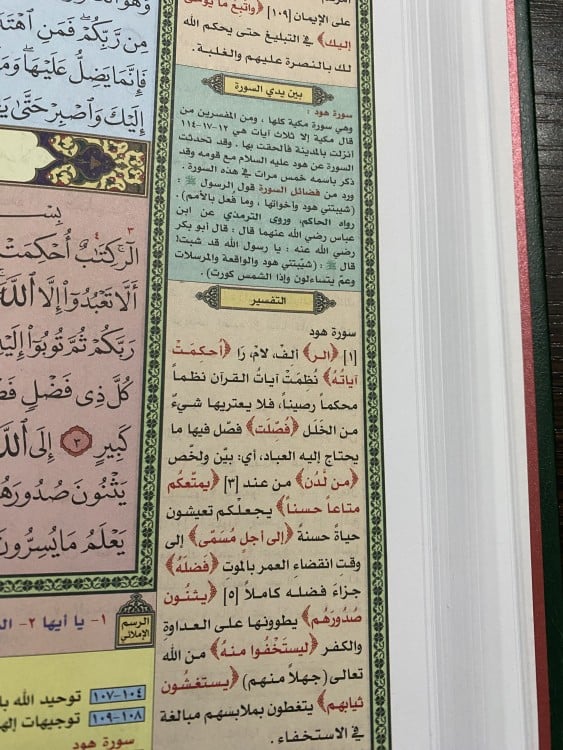 على الإيمان [١٠٩] ﴿واتبع ما يوحى
إليك﴾ في التبليغ حتى يحكم الله
لك بالنصرة عليهم والغلبة.
بين يدي السورة
سورة هود :
وهي سورة مكية كلها ، ومن المفسرين من
قال مكية إلا ثلاث آيات هي ١٢-١٧-١١٤
أنزلت بالمدينة فألحقت بها . وقد تحدثت
السورة عن هود عليه السلام مع قومه وقد
ذكر باسمه خمس مرات في هذه السورة .
ورد من فضائل السورة قول الرسول ﷺ :
(شيبتني هود وأخواتها ، وما فعل بالأمم)
رواه الحاكم، وروى الترمذي عن ابن
عباس رضي الله عنهما قال : قال أبو بكر
رضي الله عنه : يا رسول الله قد شبت!
قال ﷺ : (شيّبتني هود والواقعة والمرسلات
وعمّ يتساءلون وإذا الشمس كورت) .
التفسير
سورة هود
[١] ﴿الر﴾ ألف، لام، رَا ﴿أحكمت
آياتُهُ﴾ نُظّمَتْ آياتُ القرآن نظماً
محكماً رصيناً، فلا يعتريها شيءٌ
من الخلَل ﴿فُصِّلت﴾ فصّل فيها ما
يحتاج إليه العباد، أي: بيّن ولخّص
﴿من لدُن﴾ من عند [٣] ﴿يمتّعكُم
متاعاً حسناً﴾ يجعلْكم تعيشون
حياةً حسنةً ﴿إلى أجلٍ مُسَمّى﴾ إلى
وقتِ انقضاءِ العمر بالموت ﴿فضلَهُ﴾
جزاءَ فضله كاملاً [٥] ﴿يثنُون
صُدُورَهُم﴾ يطوونها على العداوةِ
والكفر ﴿ليستَخْفُوا منهُ﴾ من الله
تعالى (جهلاً منهم) ﴿يستغشُون
ثيابهم﴾ يتغطون بملابسهم مبالغة
في الاستخفاء .
مِن رَّبِّكُمْ فَمَنِ
فَإِنَّمَا يَضِلُّ عَلَيْهَا
إِلَيْكَ وَٱصْبِرْ حَتَّىٰ
بِسْـ
الٓر ۚ كِتَٰبٌ أُحْكِمَتْ
أَلَّا تَعْبُدُوٓا۟ إِلَّا ٱللَّهَ
رَبَّكُمْ ثُمَّ تُوبُوٓا۟ إِلَيْهِ
كُلَّ ذِى فَضْلٍ
كَبِيرٍ ٣ إِلَى ٱللَّهِ
يَثْنُونَ صُدُورَهُمْ
يَعْلَمُ مَا يُسِرُّونَ
الرسم
الإملائي
١- يا أيها ٢-
١٠٤-١٠٧ توحيد الله
١٠٨-١٠٩ توجيهات
سورة هود